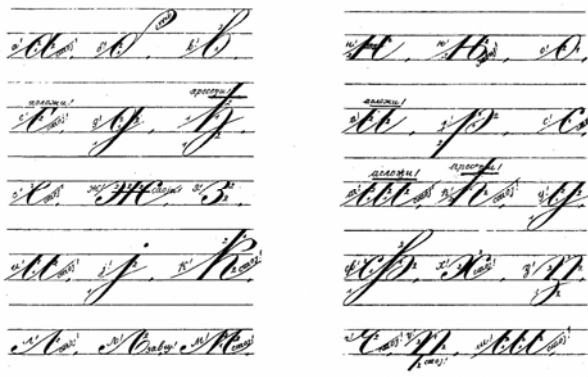 а! а стој!, б! б стој!, в! в.
положи! пресеци!
г! г стој!, д! д, ђ.
е! е стој!, ж! ж стој!, з! з.
и! и стој!, ј! ј, к! к стој!
л! л стој!, љ! љ заврти! м! м стој!
н! н, њ! њ, о! о,
положи!
п! п, р! р, с
положи! пресеци!
т! т стој!, ћ! ћ стој!, у! у
ф! ф, х! х стој!, ц! ц
ч! ч стој!, џ! џ стој!, ш! ш стој!